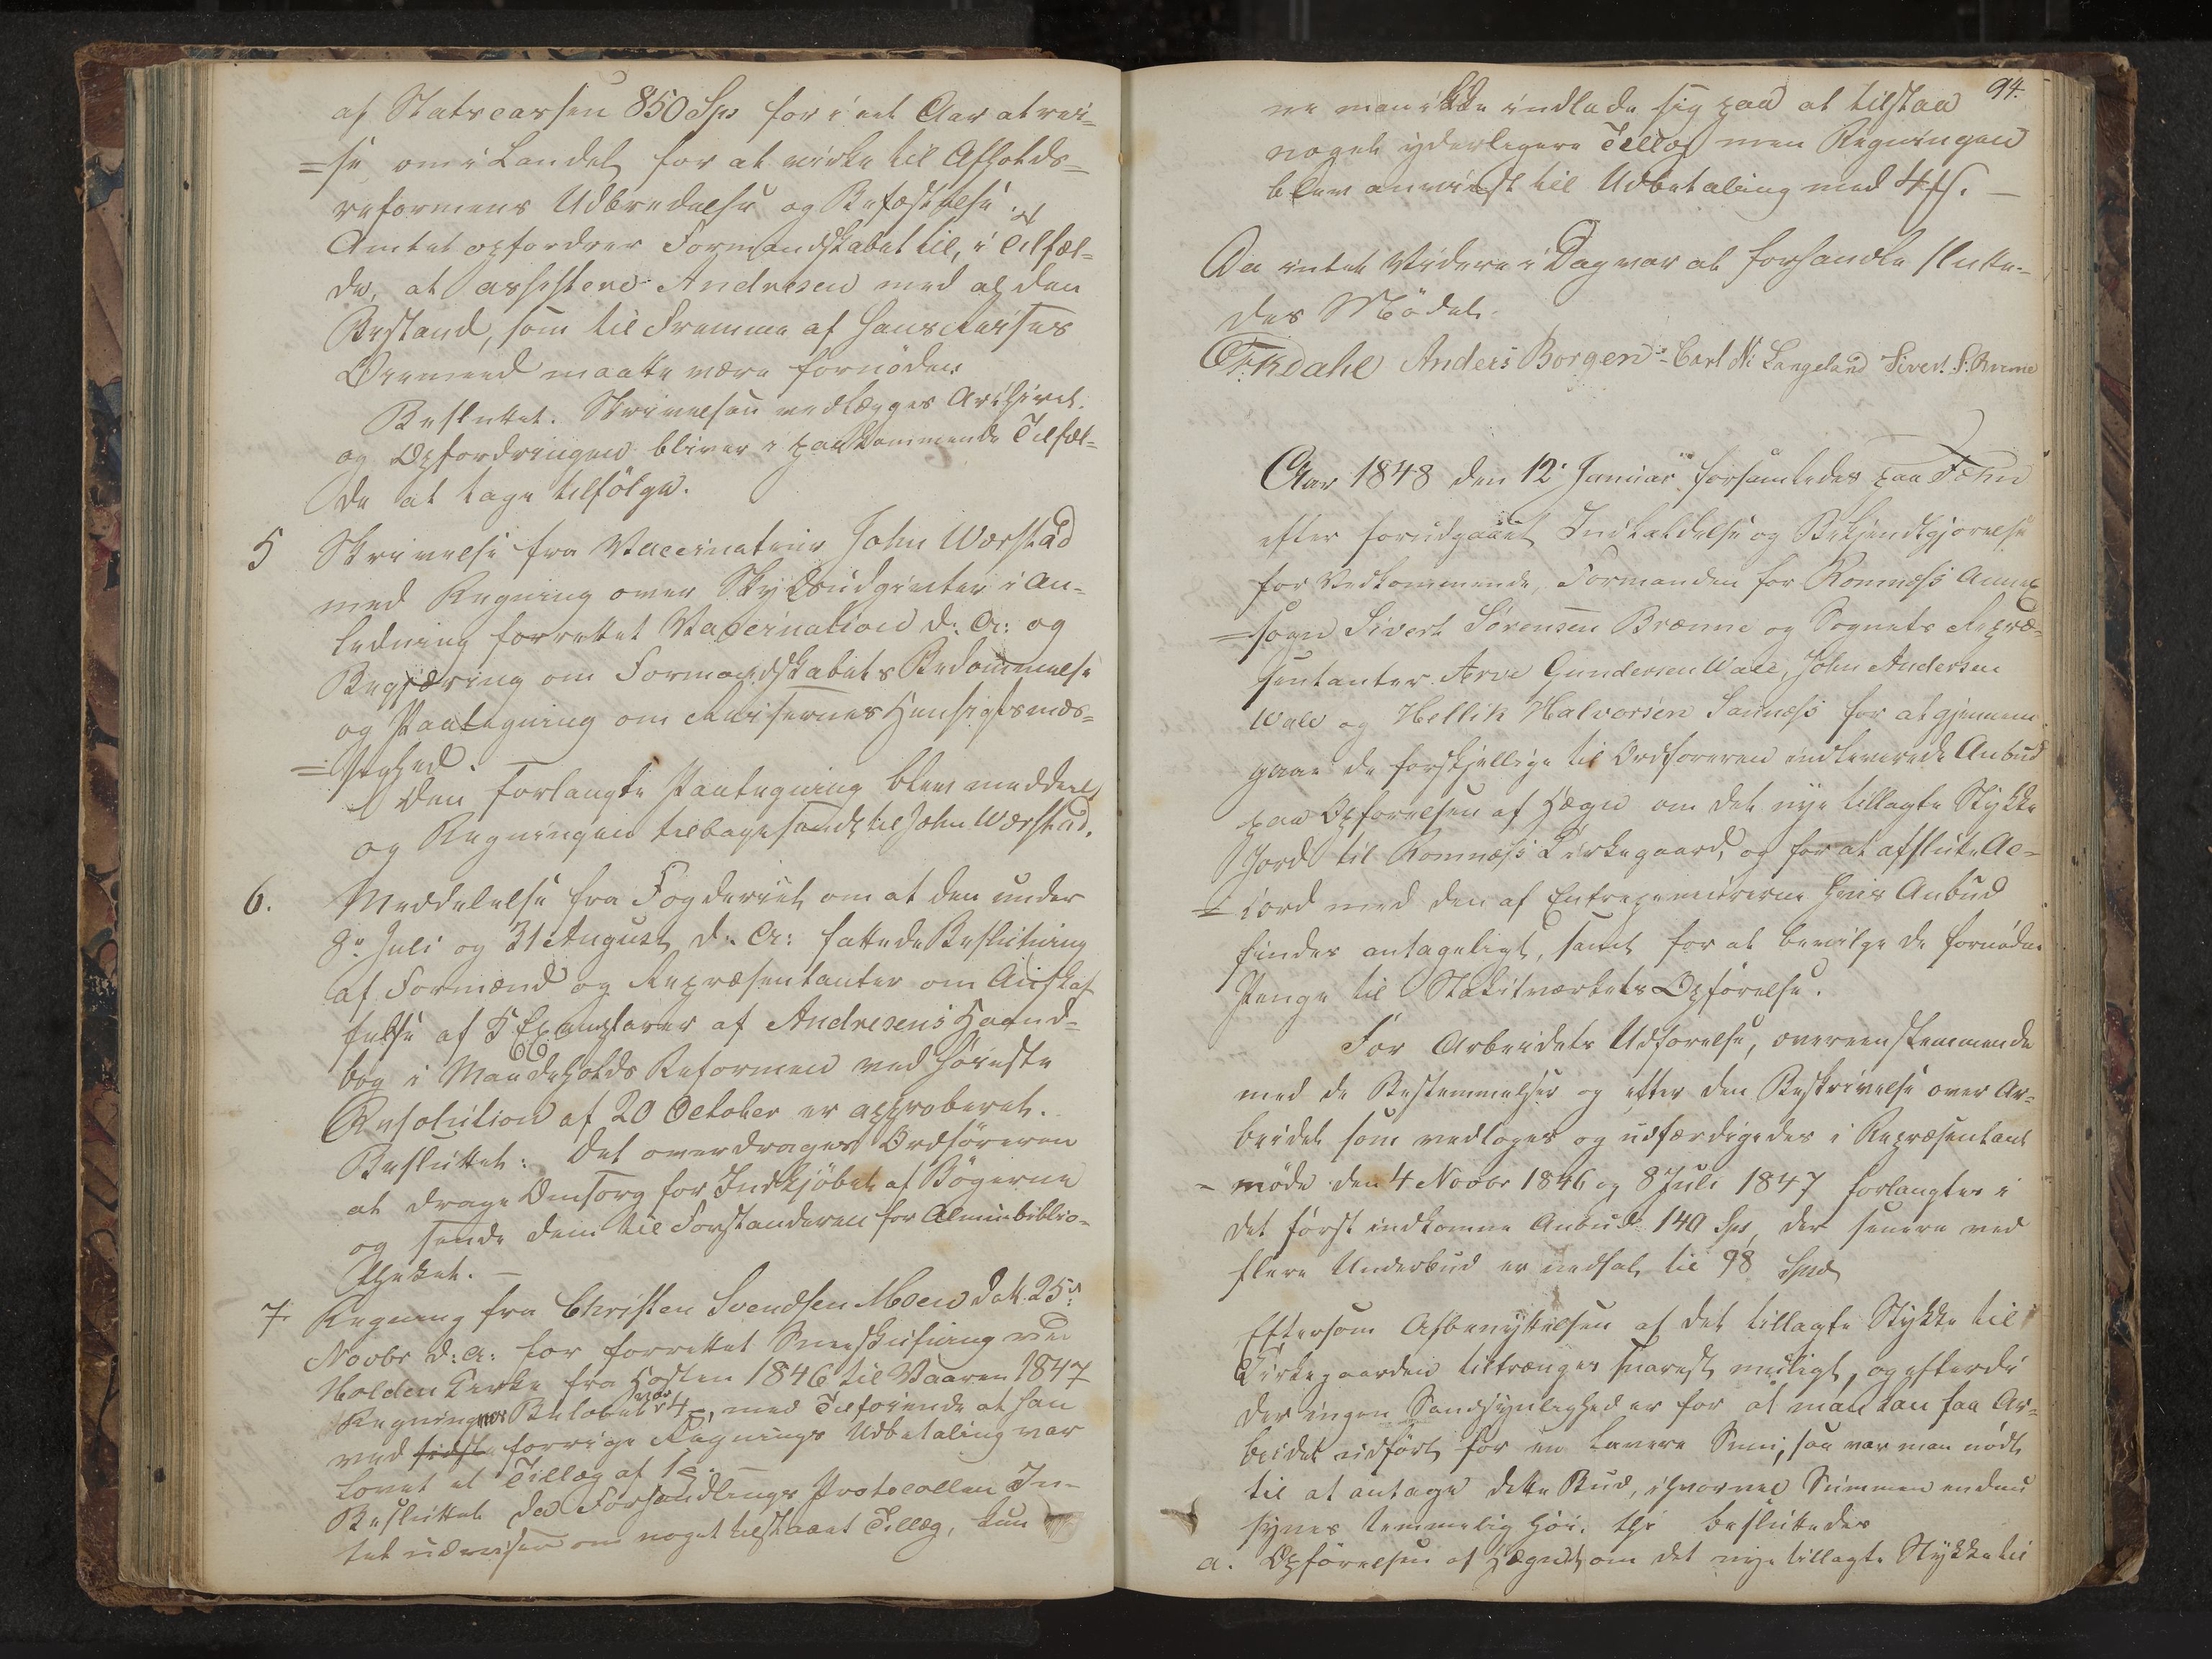 af Statscassen 850 Spd for i eet Aar at rei-
=se om i Landet for at virke til Afholds-
reformens Udbredelse og Befæstelse.
Amtet opfordrer Formandskabet til, i Tilfæl-
de, at assistere Andresen med al den
Bistand, som til Fremme af hans Reises
Øiemeed maatte være fornøden.
Besluttet. Skrivelsen vedlægges Archivet
og Opfordringen bliver i paakommende Tilfæl-
de at tage tilfølge.
5 Skrivelse fra Vaccinateur John Wærstad
med Regning over Skydsudgivter i An-
ledning forrettet Vaccination d: A: og
Begjæring om Formandskabets Bedømmelse
og Paategning om Reisernes Hensigtsmæs-
=sighed.
Den forlangte Paategning blev meddeelt
og Regningen tilbagesendt til John Wærstad.
6. Meddelelse fra Fogderiet om at den under
8de Juli og 31 August d: A: fattede Beslutning
af Formænd og Repræsentanter om Anskaf-
felse af 5 Exemplarer af Andresens Haand-
bog i Maadeholds Reformen ved høieste
Resolution af 20 October er approberet.
Besluttet: Det overdrages Ordføreren
at drage Omsorg for Indkjøbet af Bøgerne
og sende dem til Forstanderen for Almuebiblio-
theket. —
7. Regning fra Christen Svendsen Moen dat. 25de
Novbr d: A: for forrettet Sneeskufning ved
Holden Kirke fra Høsten 1846 til Vaaren 1847
Regningens Beløbet var 4 , med Tilføiende at han
ved sidste forrige Regnings Udbetaling var
lovet et Tillæg af 1
Besluttet Da Forhandlings Protocollen In-
tet udviser om noget tilstaaet Tillæg, kun
94.
ne man ikke indlade sig paa at tilstaa
noget yderligere Tillæg men Regningen
blev anviist til Udbetaling med 4 —
Da intet Videre i Dag var at forhandle slutte-
des Mødet.
Ørkdahl Anders Borgen Carl N: Langeland Sivert S. Brenne
Aar 1848 den 12te Januar forsamledes paa Fæhn
efter forudgaaet Indkaldelse og Bekjendtgjørelse
for Vedkommende, Formanden for Romnæss Annex
=sogn Sivert Sørensen Brænne og Sognets Repræ-
sentanter Arve Gundersen Wale, John Andersen
Wale og Hellik Halvorsen Sannæss for at gjennem-
gaae de forskjellige til Ordføreren indleverede Anbud
paa Opførelsen af Hægn om det nye tillagte Stykke
Jord til Romnæss Kirkegaard, og for at afslutte Ac-
=cord med den af Entrepeneurerne hvis Anbud
findes antageligt, samt for at bevilge de fornødne
Penge til Stakitværkets Opførelse.
For Arbeidets Udførelse, overeenstemmende
med de Bestemmelser og efter den Beskrivelse over Ar-
beidet som vedtoges og udfærdigedes i Repræsentant
- møde den 4 Novbr 1846 og 8 Juli 1847 forlangtes i
det først indkomne Anbud 140 Spd, der senere ved
flere Underbud er nedsat til 98 Spd
Eftersom Afbenyttelsen af det tillagte Stykke til
Kirkegaarden tiltrænges snarest muligt, og efterdi
der ingen Sandsynlighed er for at man kan faa Ar-
beidet udført for en lavere Sum, saa var man nødt
til at antage dette Bud, ihvorvel Summen endnu
synes temmelig høi. thi besluttedes
a. Opførelsen af Hægnet om det nye tillagte Stykke til